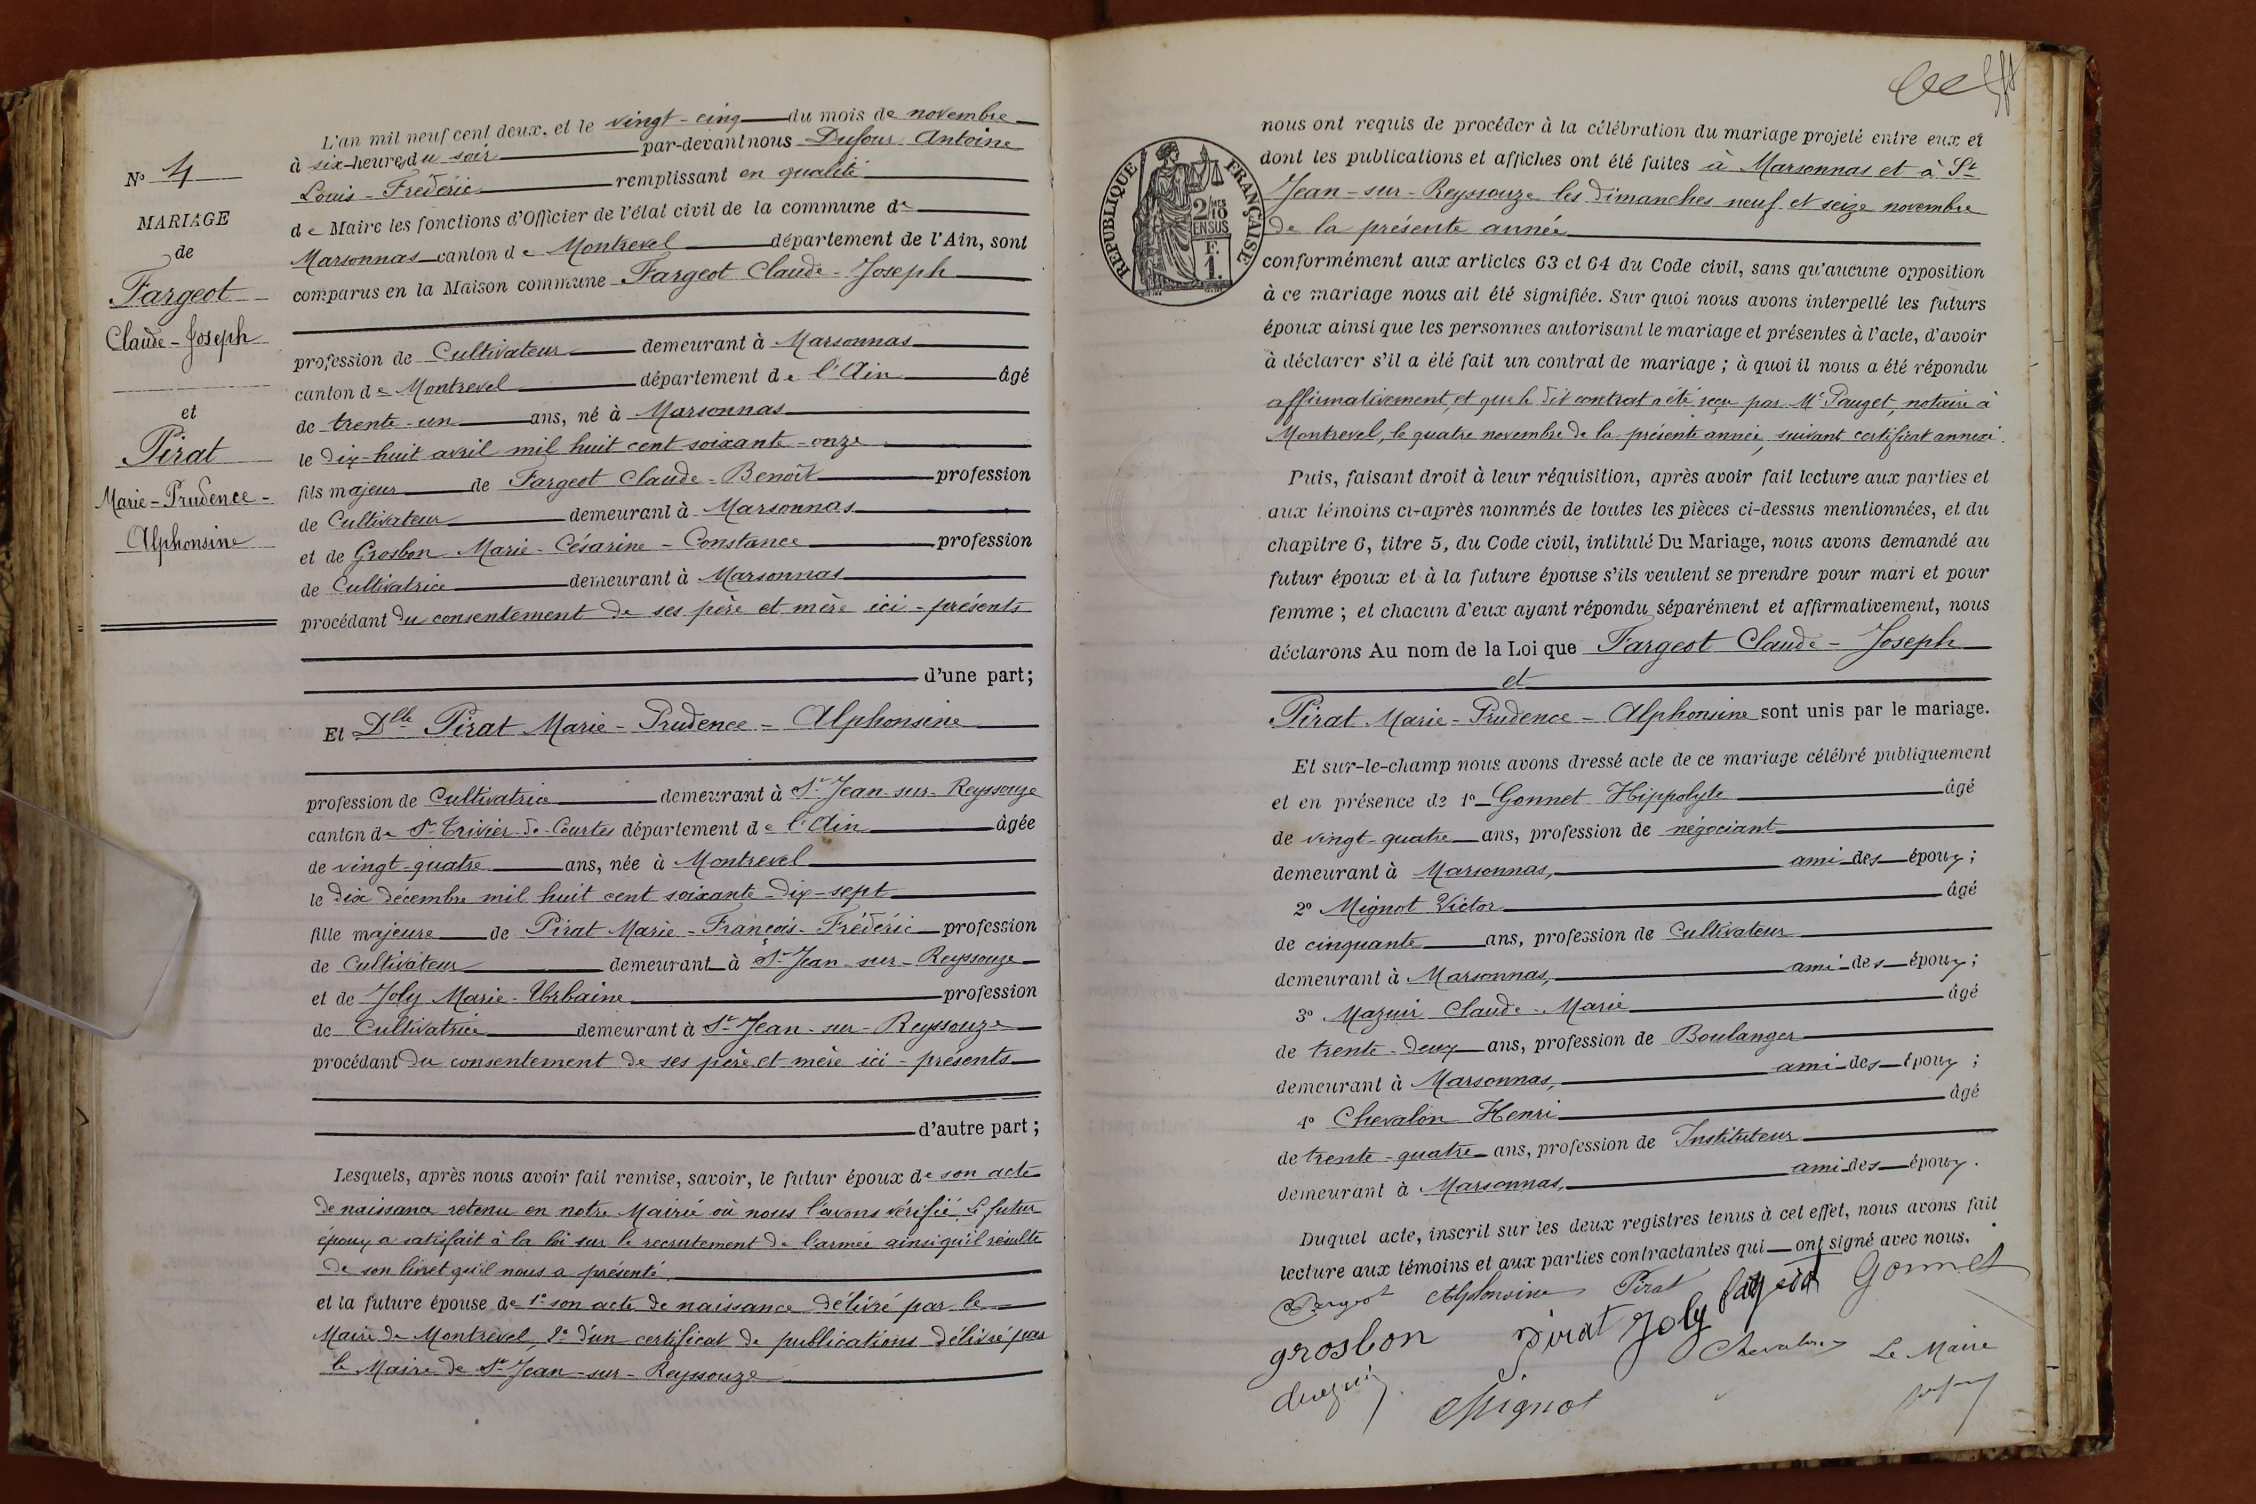 N° 4
MARIAGE
de
Fargeot
Claude-Joseph
et
Pirat
Marie-Prudence-
Alphonsine
L'an mil neuf cent deux, et le vingt-cinq du mois de novembre
à six heures du soir par-devant nous Dufour Antoine
Louis-Frédéric remplissant en qualité
de Maire les fonctions d'Officier de l'état civil de la commune de
Marsonnas canton de Montrevel département de l'Ain, sont
comparus en la Maison commune Fargeot Claude-Joseph
profession de Cultivateur demeurant à Marsonnas
canton de Montrevel département de l'Ain âgé
de trente-un ans, né à Marsonnas
le dix-huit avril mil huit cent soixante-onze
fils majeur de Fargeot Claude-Benoît profession
de Cultivateur demeurant à Marsonnas
et de Grosbon Marie-Césarine-Constance profession
de Cultivatrice demeurant à Marsonnas
procédant du consentement de ses père et mère ici-présents
d'une part;
Et Dlle Pirat Marie-Prudence-Alphonsine
profession de Cultivatrice demeurant à St-Jean-sur-Reyssouze
canton de St-Trivier-de-Courtes département de l'Ain âgée
de vingt-quatre ans, née à Montrevel
le dix décembre mil huit cent soixante-dix-sept
fille majeure de Pirat Marie-François-Frédéric profession
de Cultivateur demeurant à St-Jean-sur-Reyssouze
et de Joly Marie-Urbaine profession
de Cultivatrice demeurant à St-Jean-sur-Reyssouze
procédant du consentement de ses père et mère ici-présents
d'autre part;
Lesquels, après nous avoir fait remise, savoir, le futur époux de son acte
de naissance retenu en notre Mairie où nous l'avons vérifié. Le futur
époux a satisfait à la loi sur le recrutement de l'armée ainsi qu'il résulte
de son livret qu'il nous a présenté.
et la future épouse de 1° son acte de naissance délivré par le
Maire de Montrevel, 2° d'un certificat de publications délivré par
le Maire de St-Jean-sur-Reyssouze
REPUBLIQUE FRANÇAISE
2/10es
EN SUS
F.
1.
nous ont requis de procéder à la célébration du mariage projeté entre eux et
dont les publications et affiches ont été faites à Marsonnas et à St
Jean-sur-Reyssouze les dimanches neuf et seize novembre
de la présente année
conformément aux articles 63 et 64 du Code civil, sans qu'aucune opposition
à ce mariage nous ait été signifiée. Sur quoi nous avons interpellé les futurs
époux ainsi que les personnes autorisant le mariage et présentes à l'acte, d'avoir
à déclarer s'il a été fait un contrat de mariage ; à quoi il nous a été répondu
affirmativement, et que le dit contrat a été reçu par Me Pauget, notaire à
Montrevel, le quatre novembre de la présente année, suivant certificat annexé.
Puis, faisant droit à leur réquisition, après avoir fait lecture aux parties et
aux témoins ci-après nommés de toutes les pièces ci-dessus mentionnées, et du
chapitre 6, titre 5, du Code civil, intitulé Du Mariage, nous avons demandé au
futur époux et à la future épouse s'ils veulent se prendre pour mari et pour
femme ; et chacun d'eux ayant répondu séparément et affirmativement, nous
déclarons Au nom de la Loi que Fargeot Claude-Joseph
et
Pirat Marie-Prudence-Alphonsine sont unis par le mariage.
Et sur-le-champ nous avons dressé acte de ce mariage célébré publiquement
et en présence de 1° Gonnet Hippolyte âgé
de vingt-quatre ans, profession de négociant
demeurant à Marsonnas, ami des époux;
2° Mignot Victor âgé
de cinquante ans, profession de Cultivateur
demeurant à Marsonnas, ami des époux;
3° Mazuir Claude-Marie âgé
de trente-deux ans, profession de Boulanger
demeurant à Marsonnas, ami des époux;
4° Chevalon Henri âgé
de trente-quatre ans, profession de Instituteur
demeurant à Marsonnas, ami des époux.
Duquel acte, inscrit sur les deux registres tenus à cet effet, nous avons fait
lecture aux témoins et aux parties contractantes qui ont signé avec nous.
Fargeot Alphonsine Pirat Fargeot Gonnet
grosbon Pirat Joly Chevalon Le Maire
Mazuir Mignot